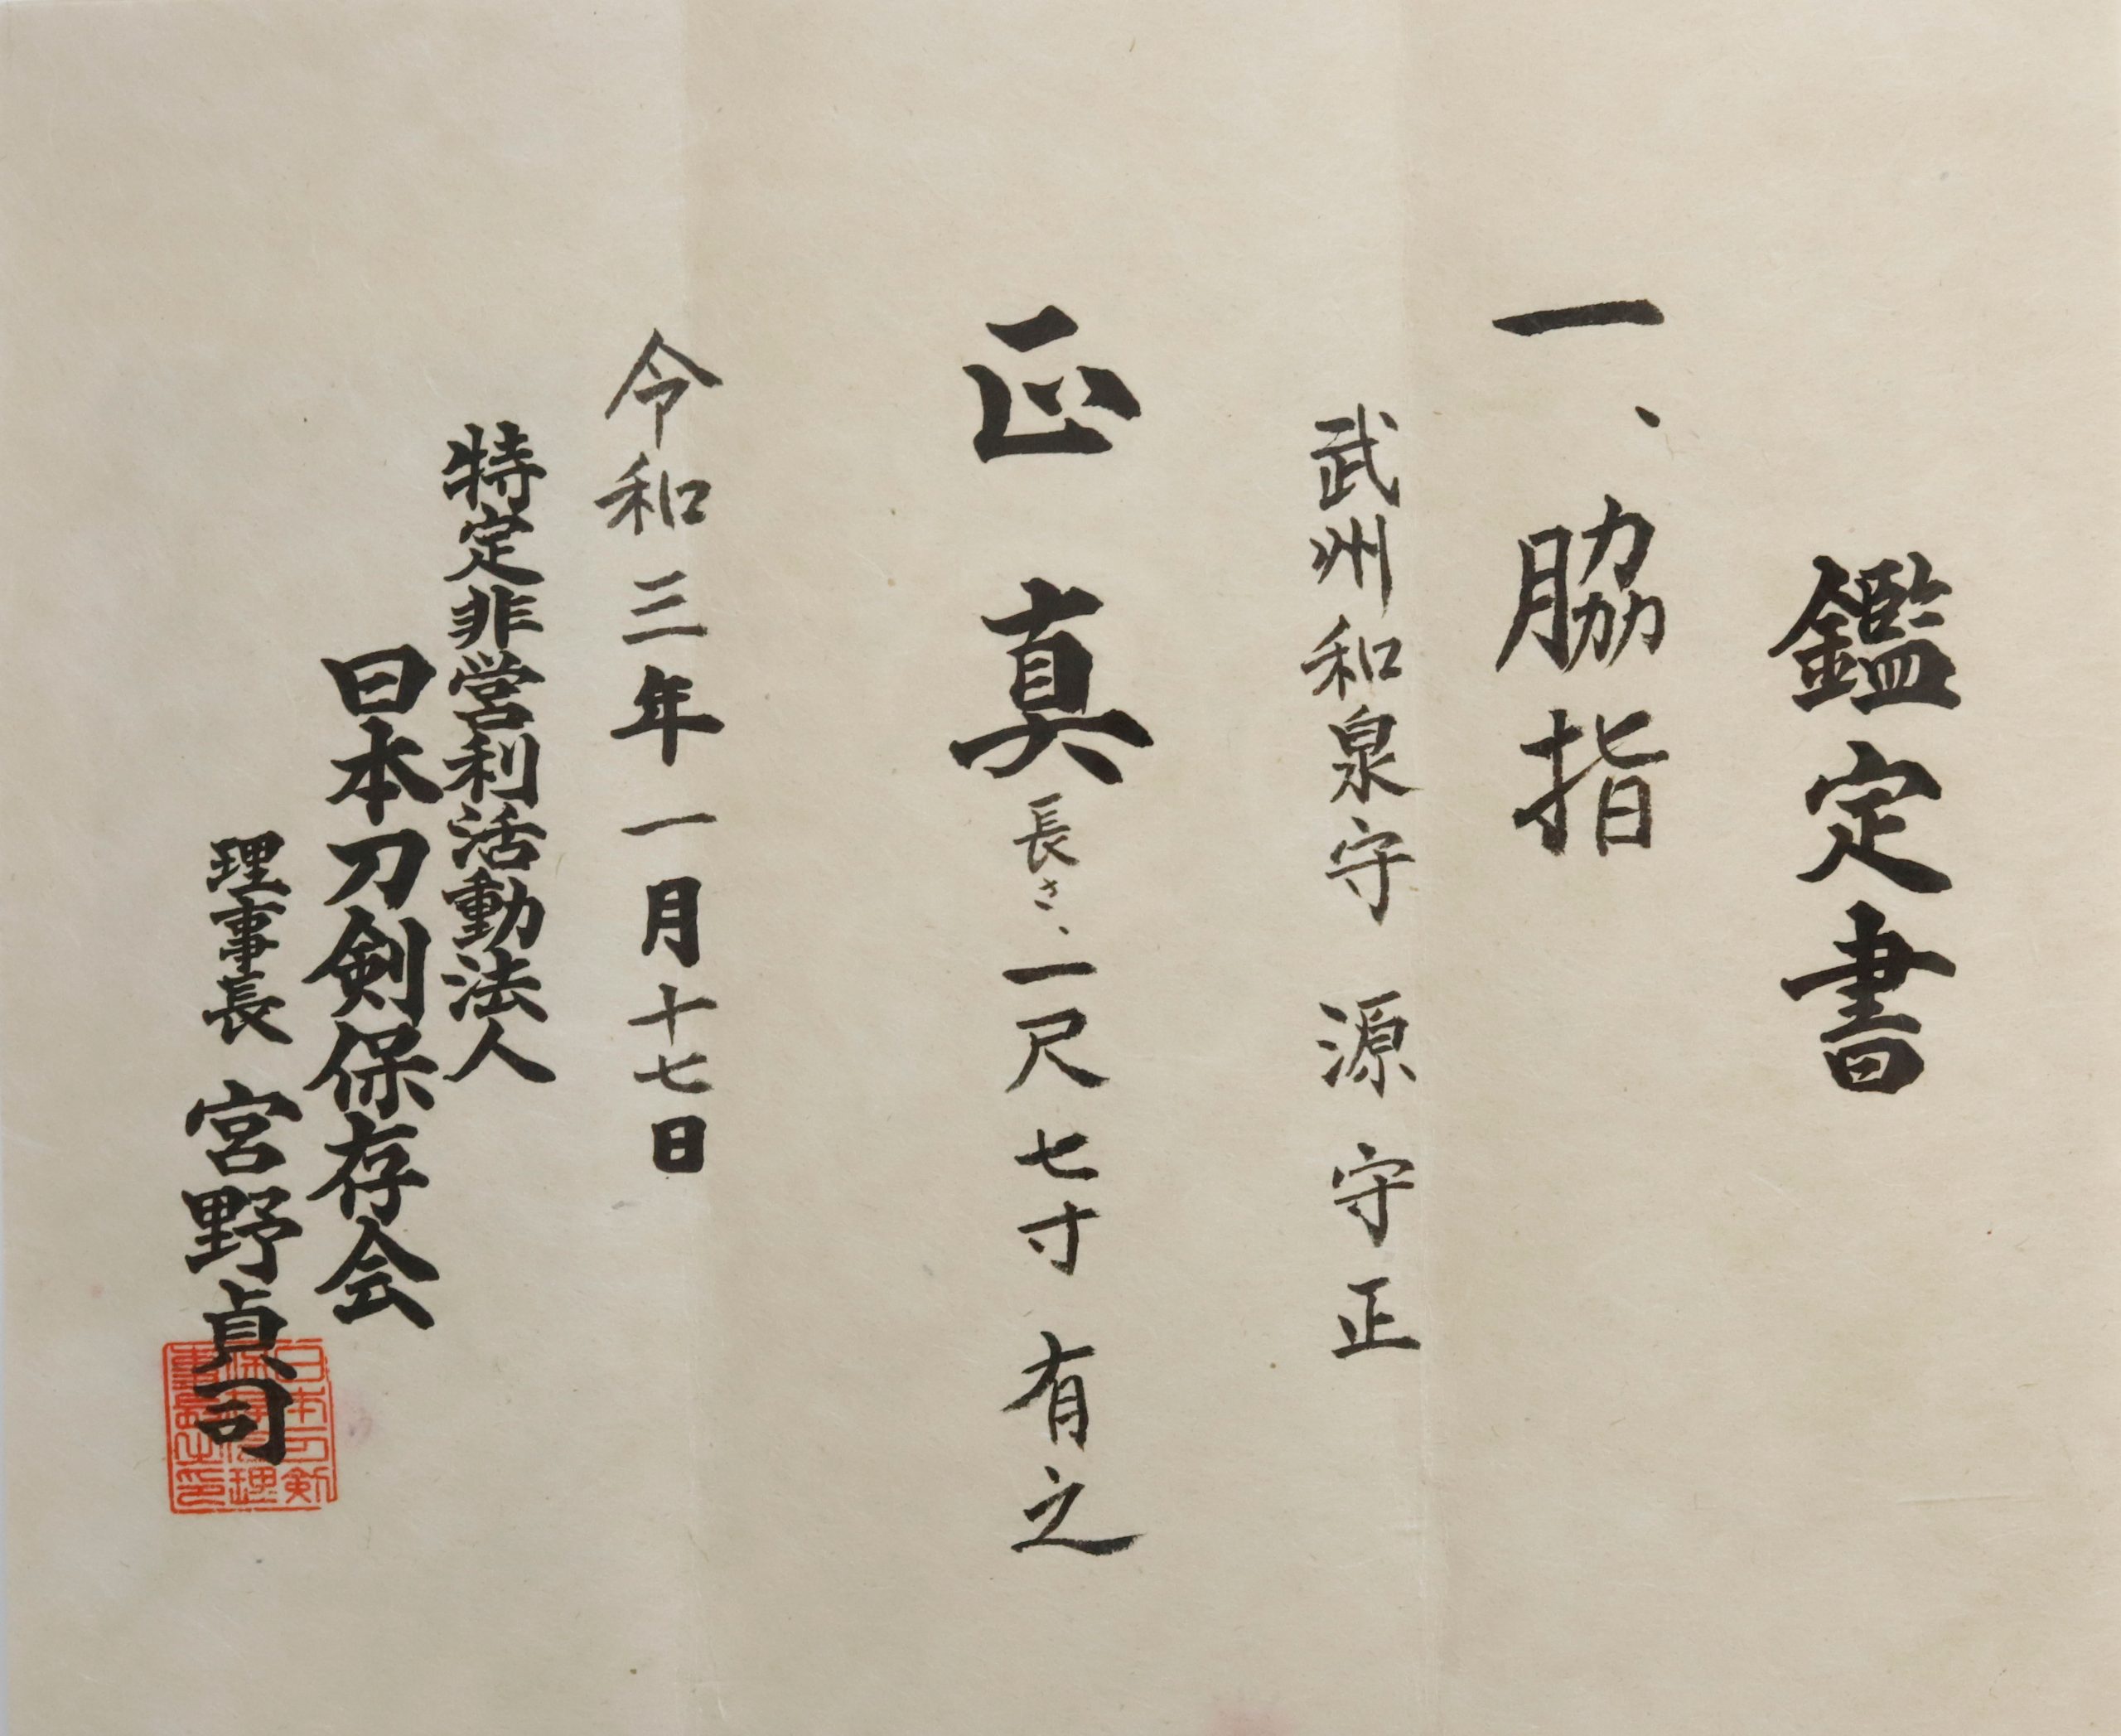 鑑定書
一、脇指
武州和泉守 源 守正
正真 長さ、一尺七寸有之
令和三年一月十七日
特定非営利活動法人
日本刀剣保存会
理事長 宮野貞司